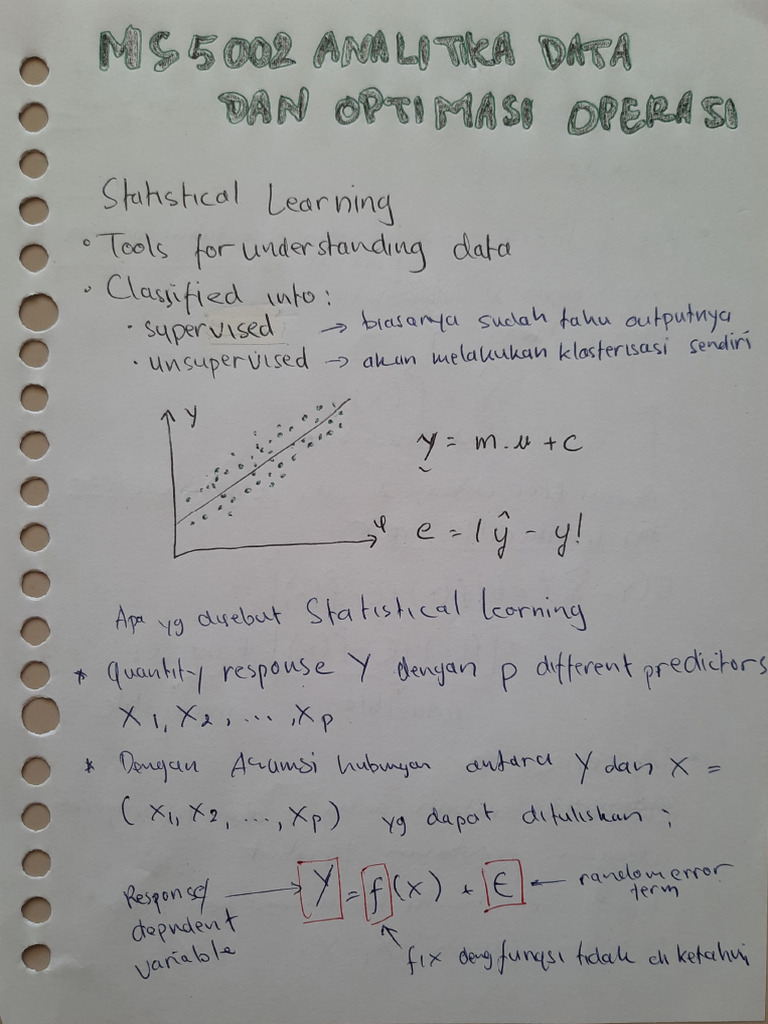 MS5002 ANALITIKA DATA
DAN OPTIMASI OPERASI
Statistical Learning
• Tools for understanding data
• Classified into :
• supervised → biasanya sudah tahu outputnya
• unsupervised → akan melakukan klasterisasi sendiri
y
y = m.x + c
x
e = |ŷ - y|
Apa yg disebut Statistical learning
* Quantity response Y dengan p different predictors
X1, X2, ..., Xp
* Dengan Asumsi hubungan antara Y dan X =
(X1, X2, ..., Xp) yg dapat dituliskan :
Y = f(x) + ϵ ← random error
term
Response/
depndent
variable
fix deng fungsi tidak di ketahui